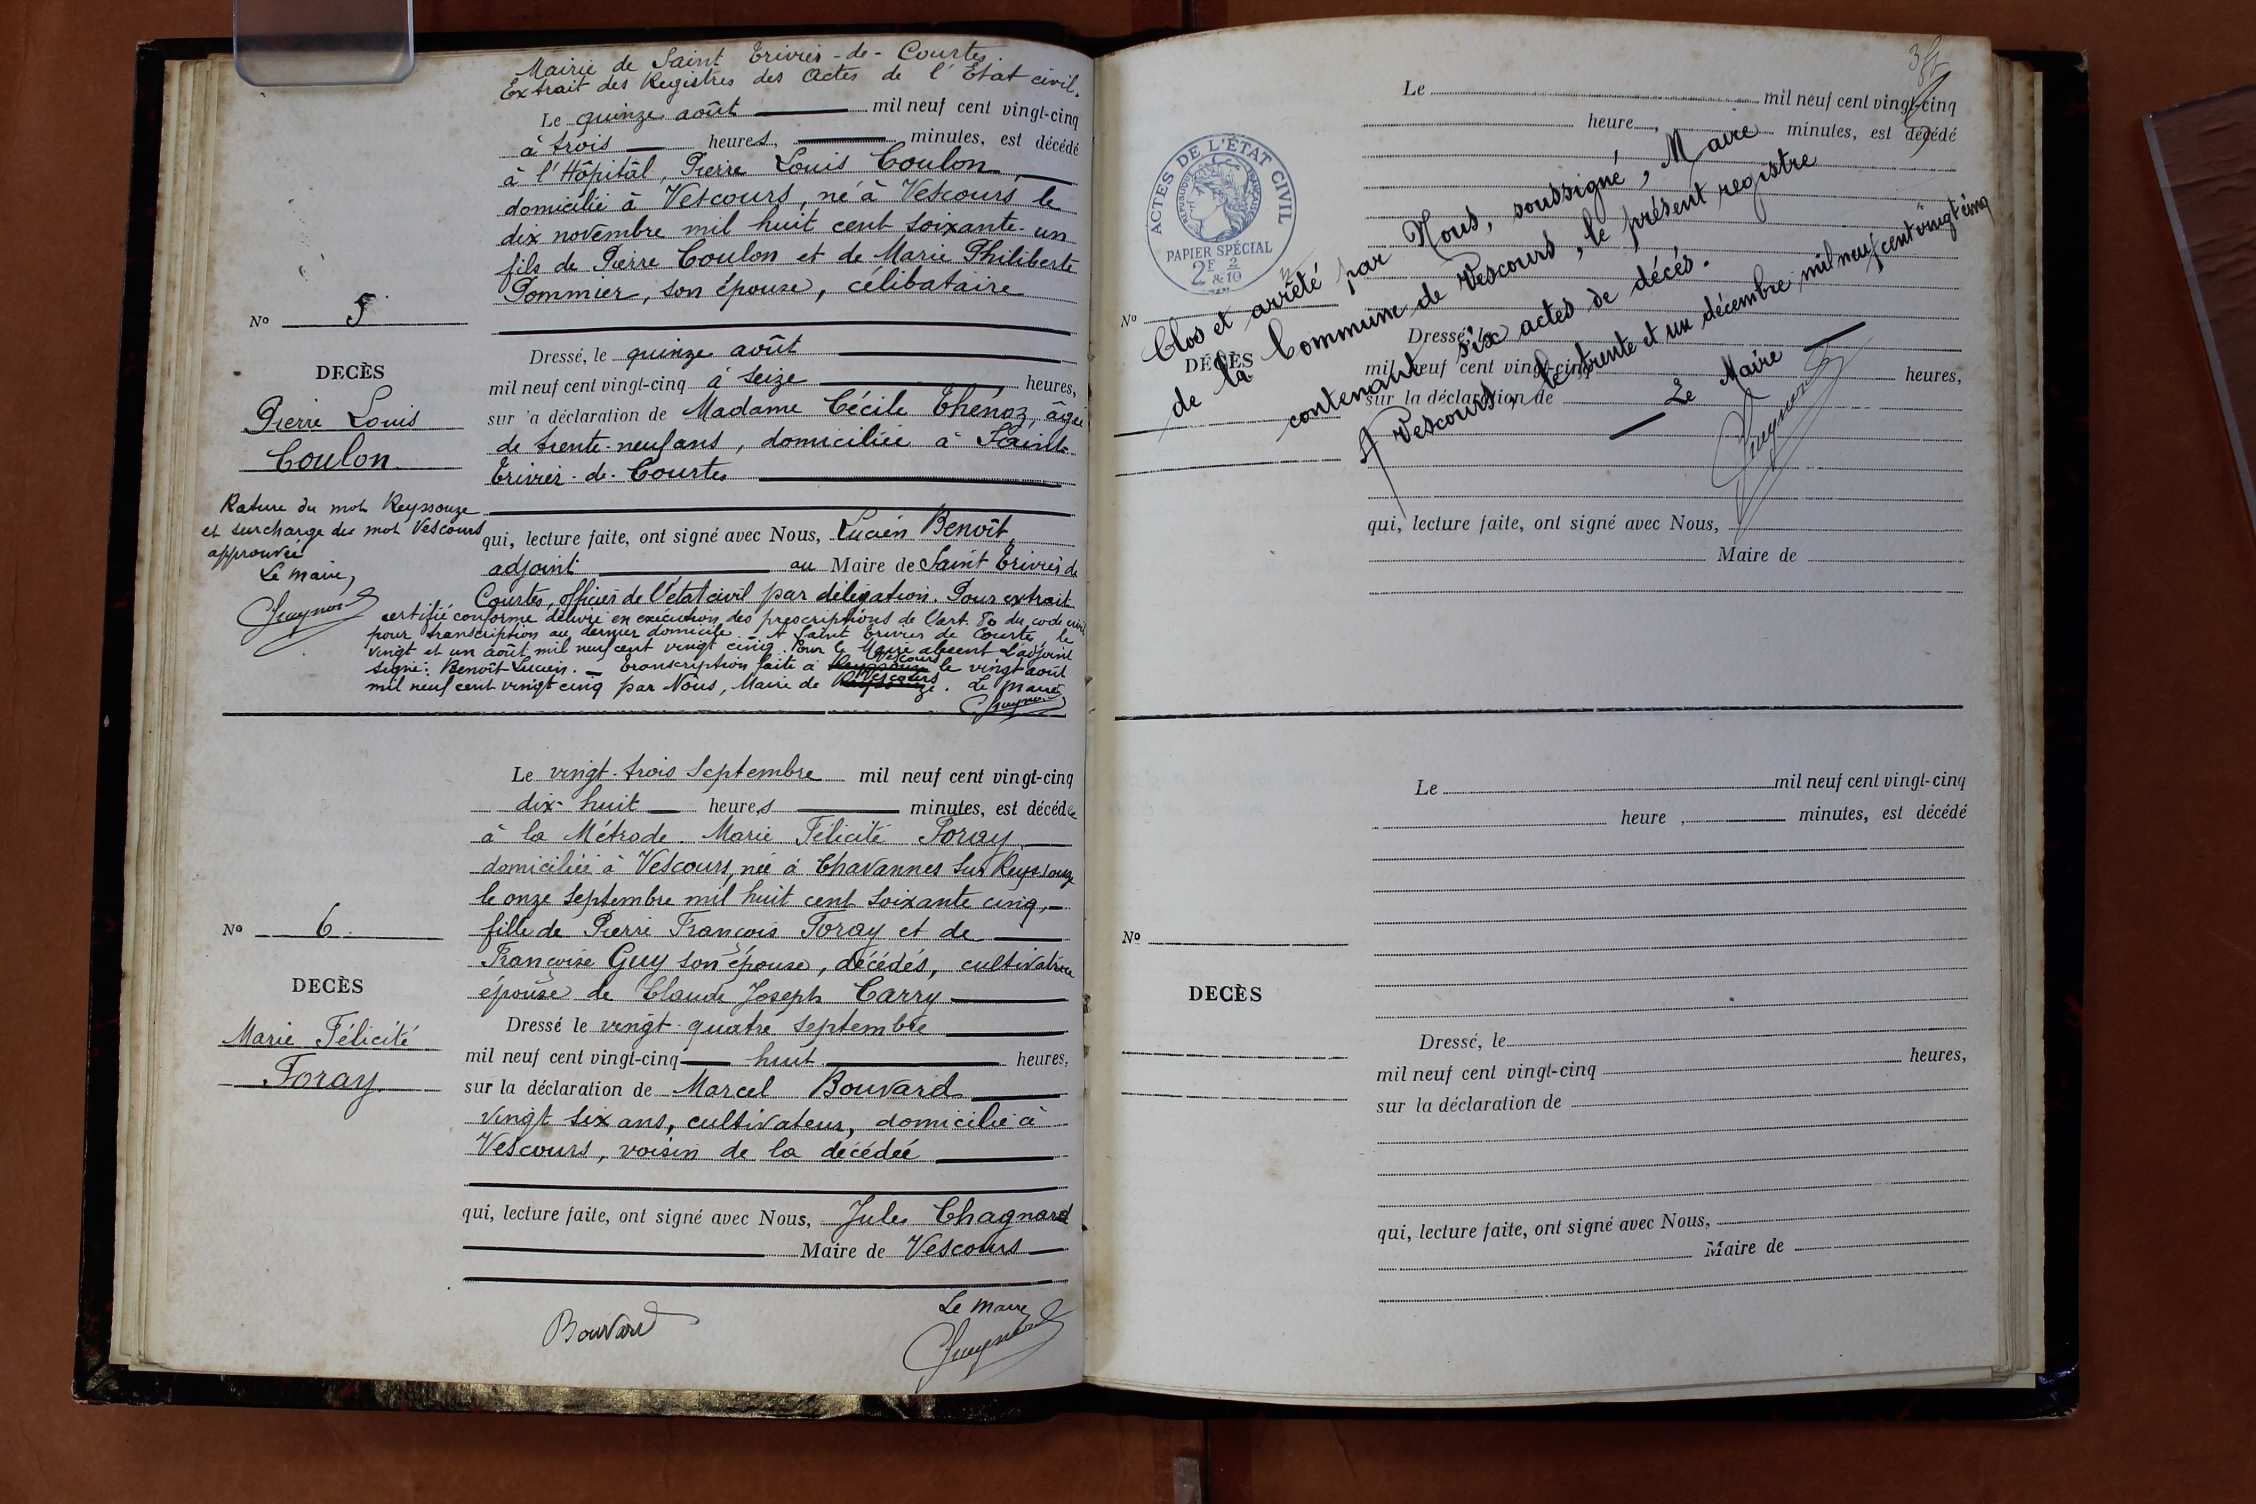 Mairie de Saint Trivier-de-Courtes
Extrait des Registres des Actes de l'Etat civil.
Le quinze août mil neuf cent vingt-cinq
à trois heures, minutes, est décédé
à l'Hôpital, Pierre Louis Coulon,
domicilié à Vescours, né à Vescours, le
dix novembre mil huit cent soixante-un
fils de Pierre Coulon et de Marie Philiberte
Pommier, son épouse, célibataire
No 5
DECÈS
Pierre Louis
Coulon
Dressé, le quinze août
mil neuf cent vingt-cinq à seize heures,
sur la déclaration de Madame Cécile Thénoz, âgée
de trente-neuf ans, domiciliée à Saint-
Trivier-de-Courtes
Rature du mot Reyssouze
et surcharge du mot Vescours
approuvée
Le Maire,
qui, lecture faite, ont signé avec Nous, Lucien Benoît,
adjoint au Maire de Saint Trivier de
Courtes, officier de l'état civil par délégation. Pour extrait
certifié conforme délivré en exécution des prescriptions de l'art. 80 du code civil
pour transcription au dernier domicile. - A Saint Trivier de Courtes, le
vingt et un août mil neuf cent vingt cinq. Pour le Maire absent L'adjoint
Signé: Benoît-Lucien. - Transcription faite à Reyssouze Vescours le vingt août
mil neuf cent vingt cinq par Nous, Maire de Reyssouze Vescours. Le Maire
Le vingt-trois Septembre mil neuf cent vingt-cinq
dix-huit heures minutes, est décédée
à la Métrode. Marie Félicité Foray,
domiciliée à Vescours, née à Chavannes sur Reyssouze
le onze Septembre mil huit cent soixante cinq,
fille de Pierre François Foray et de
Françoise Guy son épouse, décédés, cultivatrice
épouse de Claude Joseph Carry
No 6.
DECÈS
Marie Félicité
Foray
Dressé le vingt-quatre Septembre
mil neuf cent vingt-cinq huit heures,
sur la déclaration de Marcel Bouvard
vingt six ans, cultivateur, domicilié à
Vescours, voisin de la décédée
qui, lecture faite, ont signé avec Nous, Jules Chagnard
Maire de Vescours
Bouvard
Le Maire
Le mil neuf cent vingt-cinq
heure , minutes, est décédé
ACTES DE L'ETAT CIVIL
REPUBLIQUE FRANÇAISE
PAPIER SPÉCIAL
2F 2 & 10
Clos et arrêté par Nous, soussigné, Maire
de la Commune de Vescours, le présent registre
contenant six actes de décès.
A Vescours, le trente et un décembre mil neuf cent vingt cinq
Le Maire
No
DÉCÈS
Dressé, le
mil neuf cent vingt-cinq heures,
sur la déclaration de
qui, lecture faite, ont signé avec Nous,
Maire de
Le mil neuf cent vingt-cinq
heure , minutes, est décédé
No
DECÈS
Dressé, le
mil neuf cent vingt-cinq heures,
sur la déclaration de
qui, lecture faite, ont signé avec Nous,
Maire de